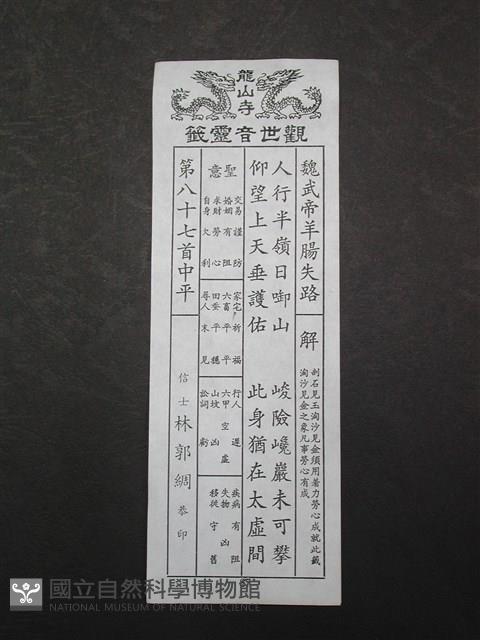 龍山寺
觀世音靈籤
魏武帝羊腸失路
解
剖石見玉淘沙見金須用着力勞心成就此籤
淘沙見金之象凡事勞心有成
人行半嶺日啣山
峻險巉巖未可攀
仰望上天垂護佑
此身猶在太虛間
聖意
交易謹防
婚姻有阻
求財勞心
自身欠利
家宅祈福
六畜平平
田蚕平穩
尋人未見
行人遲
六甲空虛
山坟凶
訟詞虧
疾病有阻
失物凶
移徙守舊
第八十七首中平
信士林郭綢恭印
國立自然科學博物館
NATIONAL MUSEUM OF NATURAL SCIENCE